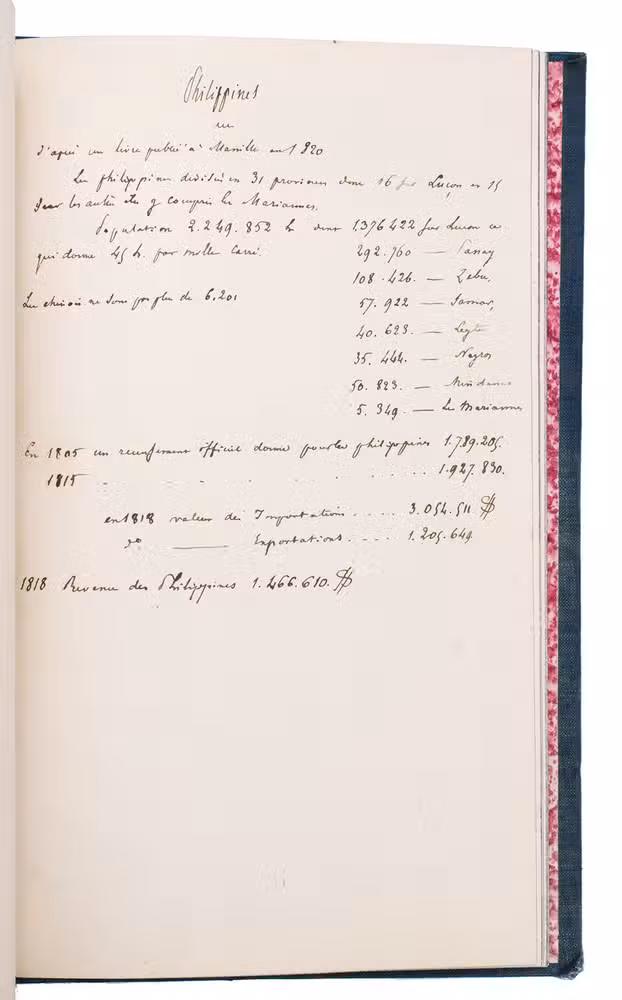 Philippines
d'après un livre publié à Manille en 1820
Les philippines divisées en 31 provinces dont 16 sur Luçon et 15
sur les autres îles y compris les Mariannes.
Population 2.249.852 h dont 1376422 sur Lucon ce
qui donne 45 h. par mille carré.
292.760 — Panay
108.426. — Zebu,
Les chinois ne sont pas plus de 6.201
57.922 — Samar,
40.623. — Leyte
35.444. — Negros
50.823. — Mindanao
5.349. — Les Mariannes
En 1805 un recensement officiel donne pour les philippines 1.789.205.
1815 . . . . . . . 1.927.830.
en 1818 valeur des Importations . . . . 3.054.511 $
do ——— Exportations. . . . 1.205.644
1818 Revenu des Philippines 1.466.610. $